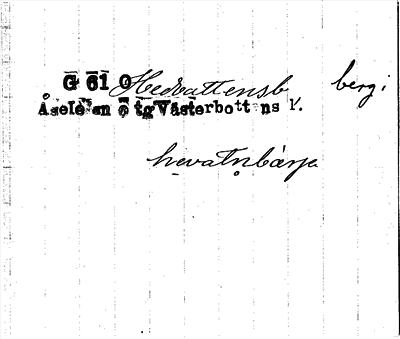 G 61 0 Hedvattensb berg i
Åsele Västerbottens l.
hevatnbärje